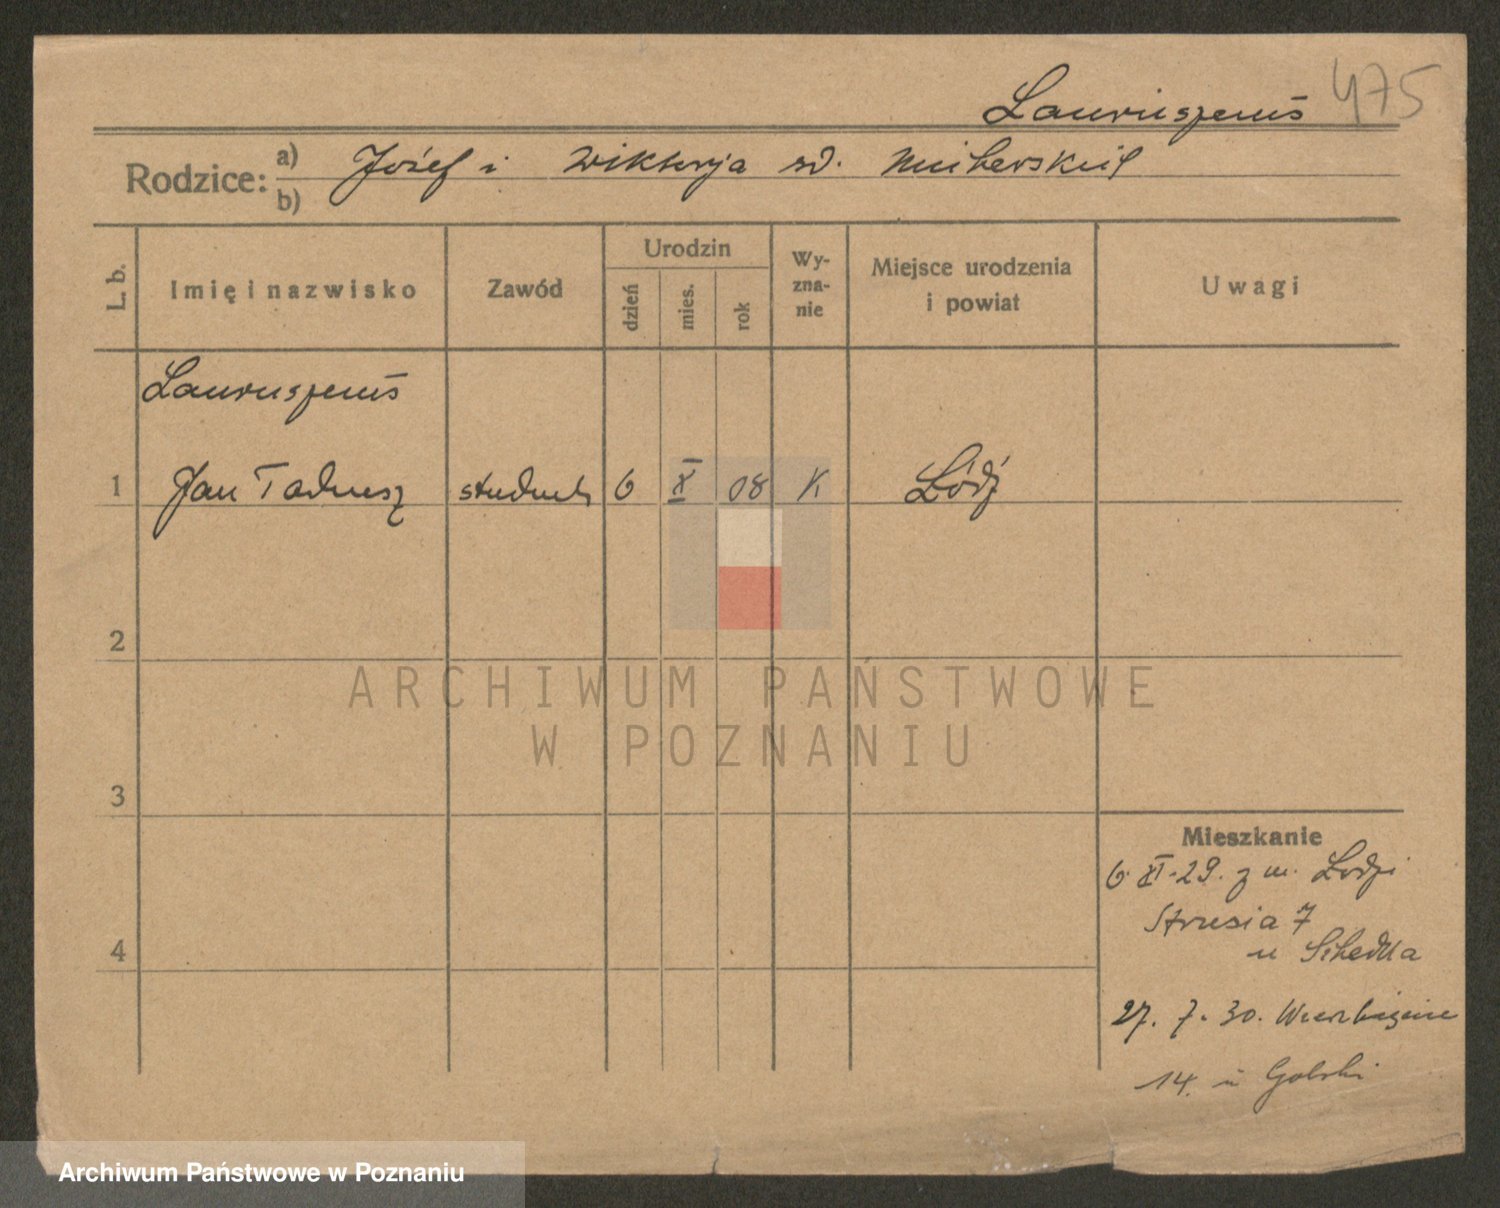 475
Rodzice:
a) Józef i Wiktorja
b)
L. b.
Imię i nazwisko
Zawód
Urodzin
dzień
mies.
rok
Wy-
zna-
nie
Miejsce urodzenia
i powiat
Uwagi
1 Jan Tadeusz student 6 X 08 K Łódź
2
3
4
Mieszkanie
6. XI. 29. z m. Łodzi
Strusia 7
u
27. 7. 30. Wierzbięcice
14. u Golski
ARCHIWUM PAŃSTWOWE
W POZNANIU
Archiwum Państwowe w Poznaniu